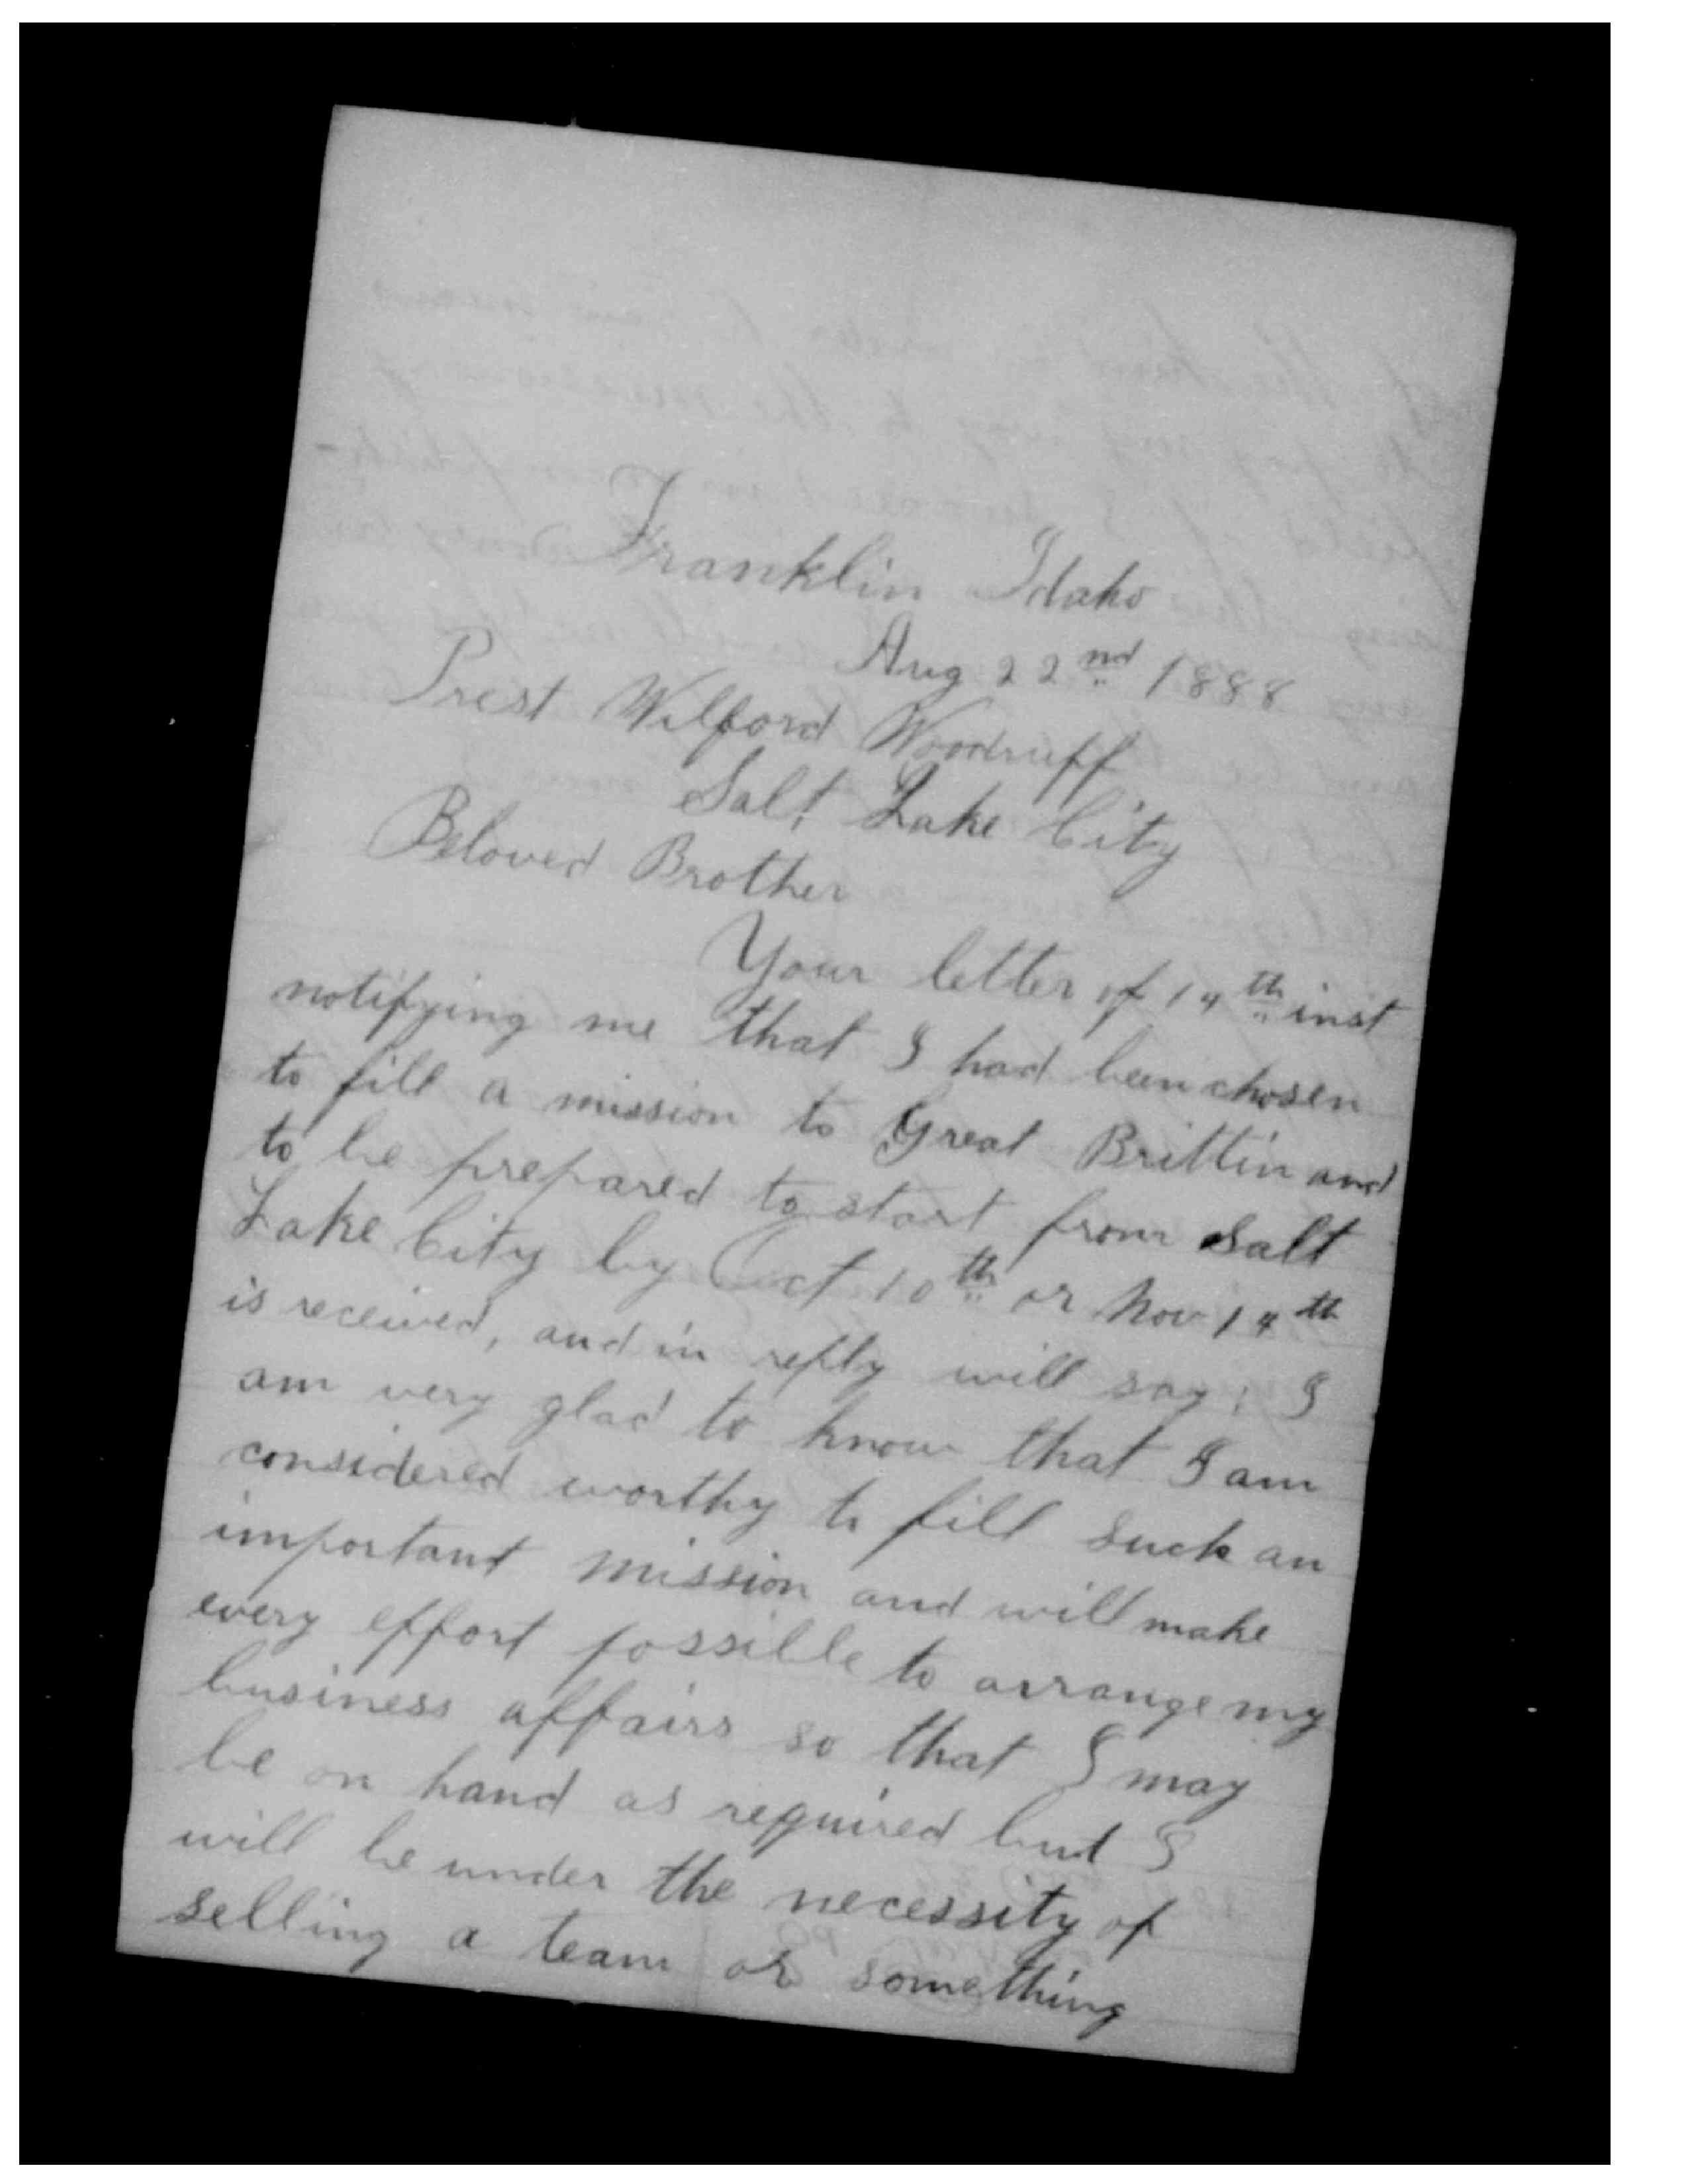 Franklin Idaho
Aug 22nd 1888
Prest Wilford Woodruff
Salt Lake City
Beloved Brother
Your letter of 14th inst
notifying me that I had been chosen
to fill a mission to Great Brittin and
to be prepared to start from Salt
Lake City by Oct 10th or Nov 14th
is received, and in reply will say; I
am very glad to know that I am
considered worthy to fill such an
important mission and will make
every effort possible to arrange my
business affairs so that I may
be on hand as required but I
will be under the necessity of
selling a team or something